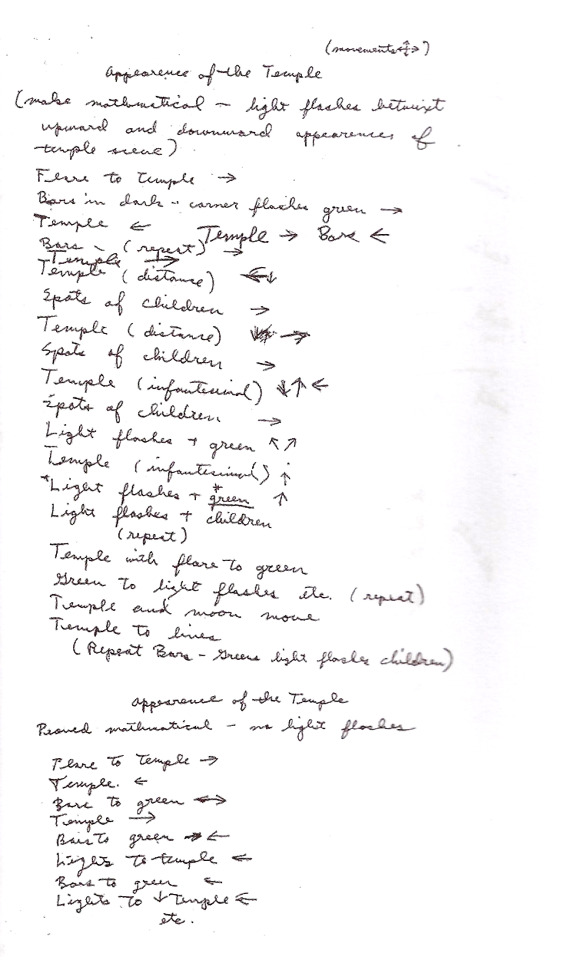 (movements ↔↕)
Appearence of the Temple
(make mathematical – light flashes betwixt
upward and downward appearences of
temple scene)
Flare to temple →
Bars in dark – corner flashes green →
Temple ← Temple → Bars ←
Bars – (repeat) →
Temple →
Temple (distance) ←↓
Spots of children →
Temple (distance) →
Spots of children →
Temple (infantesimal) ↓↑←
Spots of children →
Light flashes + green ↖↗
Temple (infantesimal) ↑
*Light flashes + *green ↑
Light flashes + children
(repeat)
Temple with flare to green
Green to light flashes etc. (repeat)
Temple and moon move
Temple to lines
(Repeat Bars – Greens light flashes children)
Appearence of the Temple
Proved mathematical – no light flashes
Flare to temple →
Temple. ←
Bars to green ↔
Temple →
Bars to green ←
Lights to temple ←
Bars to green ←
Lights to ↓ Temple ←
etc.